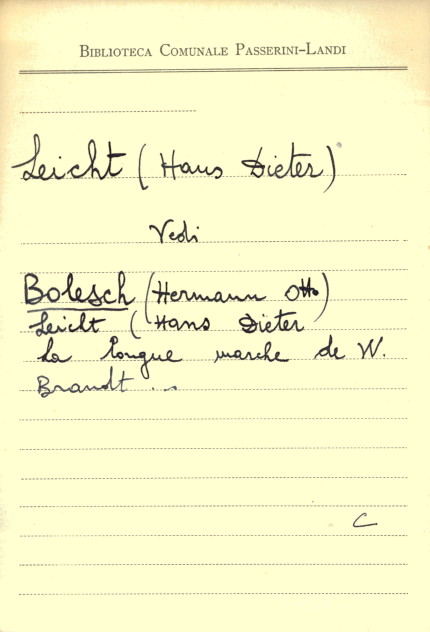 BIBLIOTECA COMUNALE PASSERINI-LANDI
Leicht (Hans Dieter)
Vedi
Bolesch (Hermann Otto)
Leicht (Hans Dieter
La longue marche de W.
Brandt ...
C